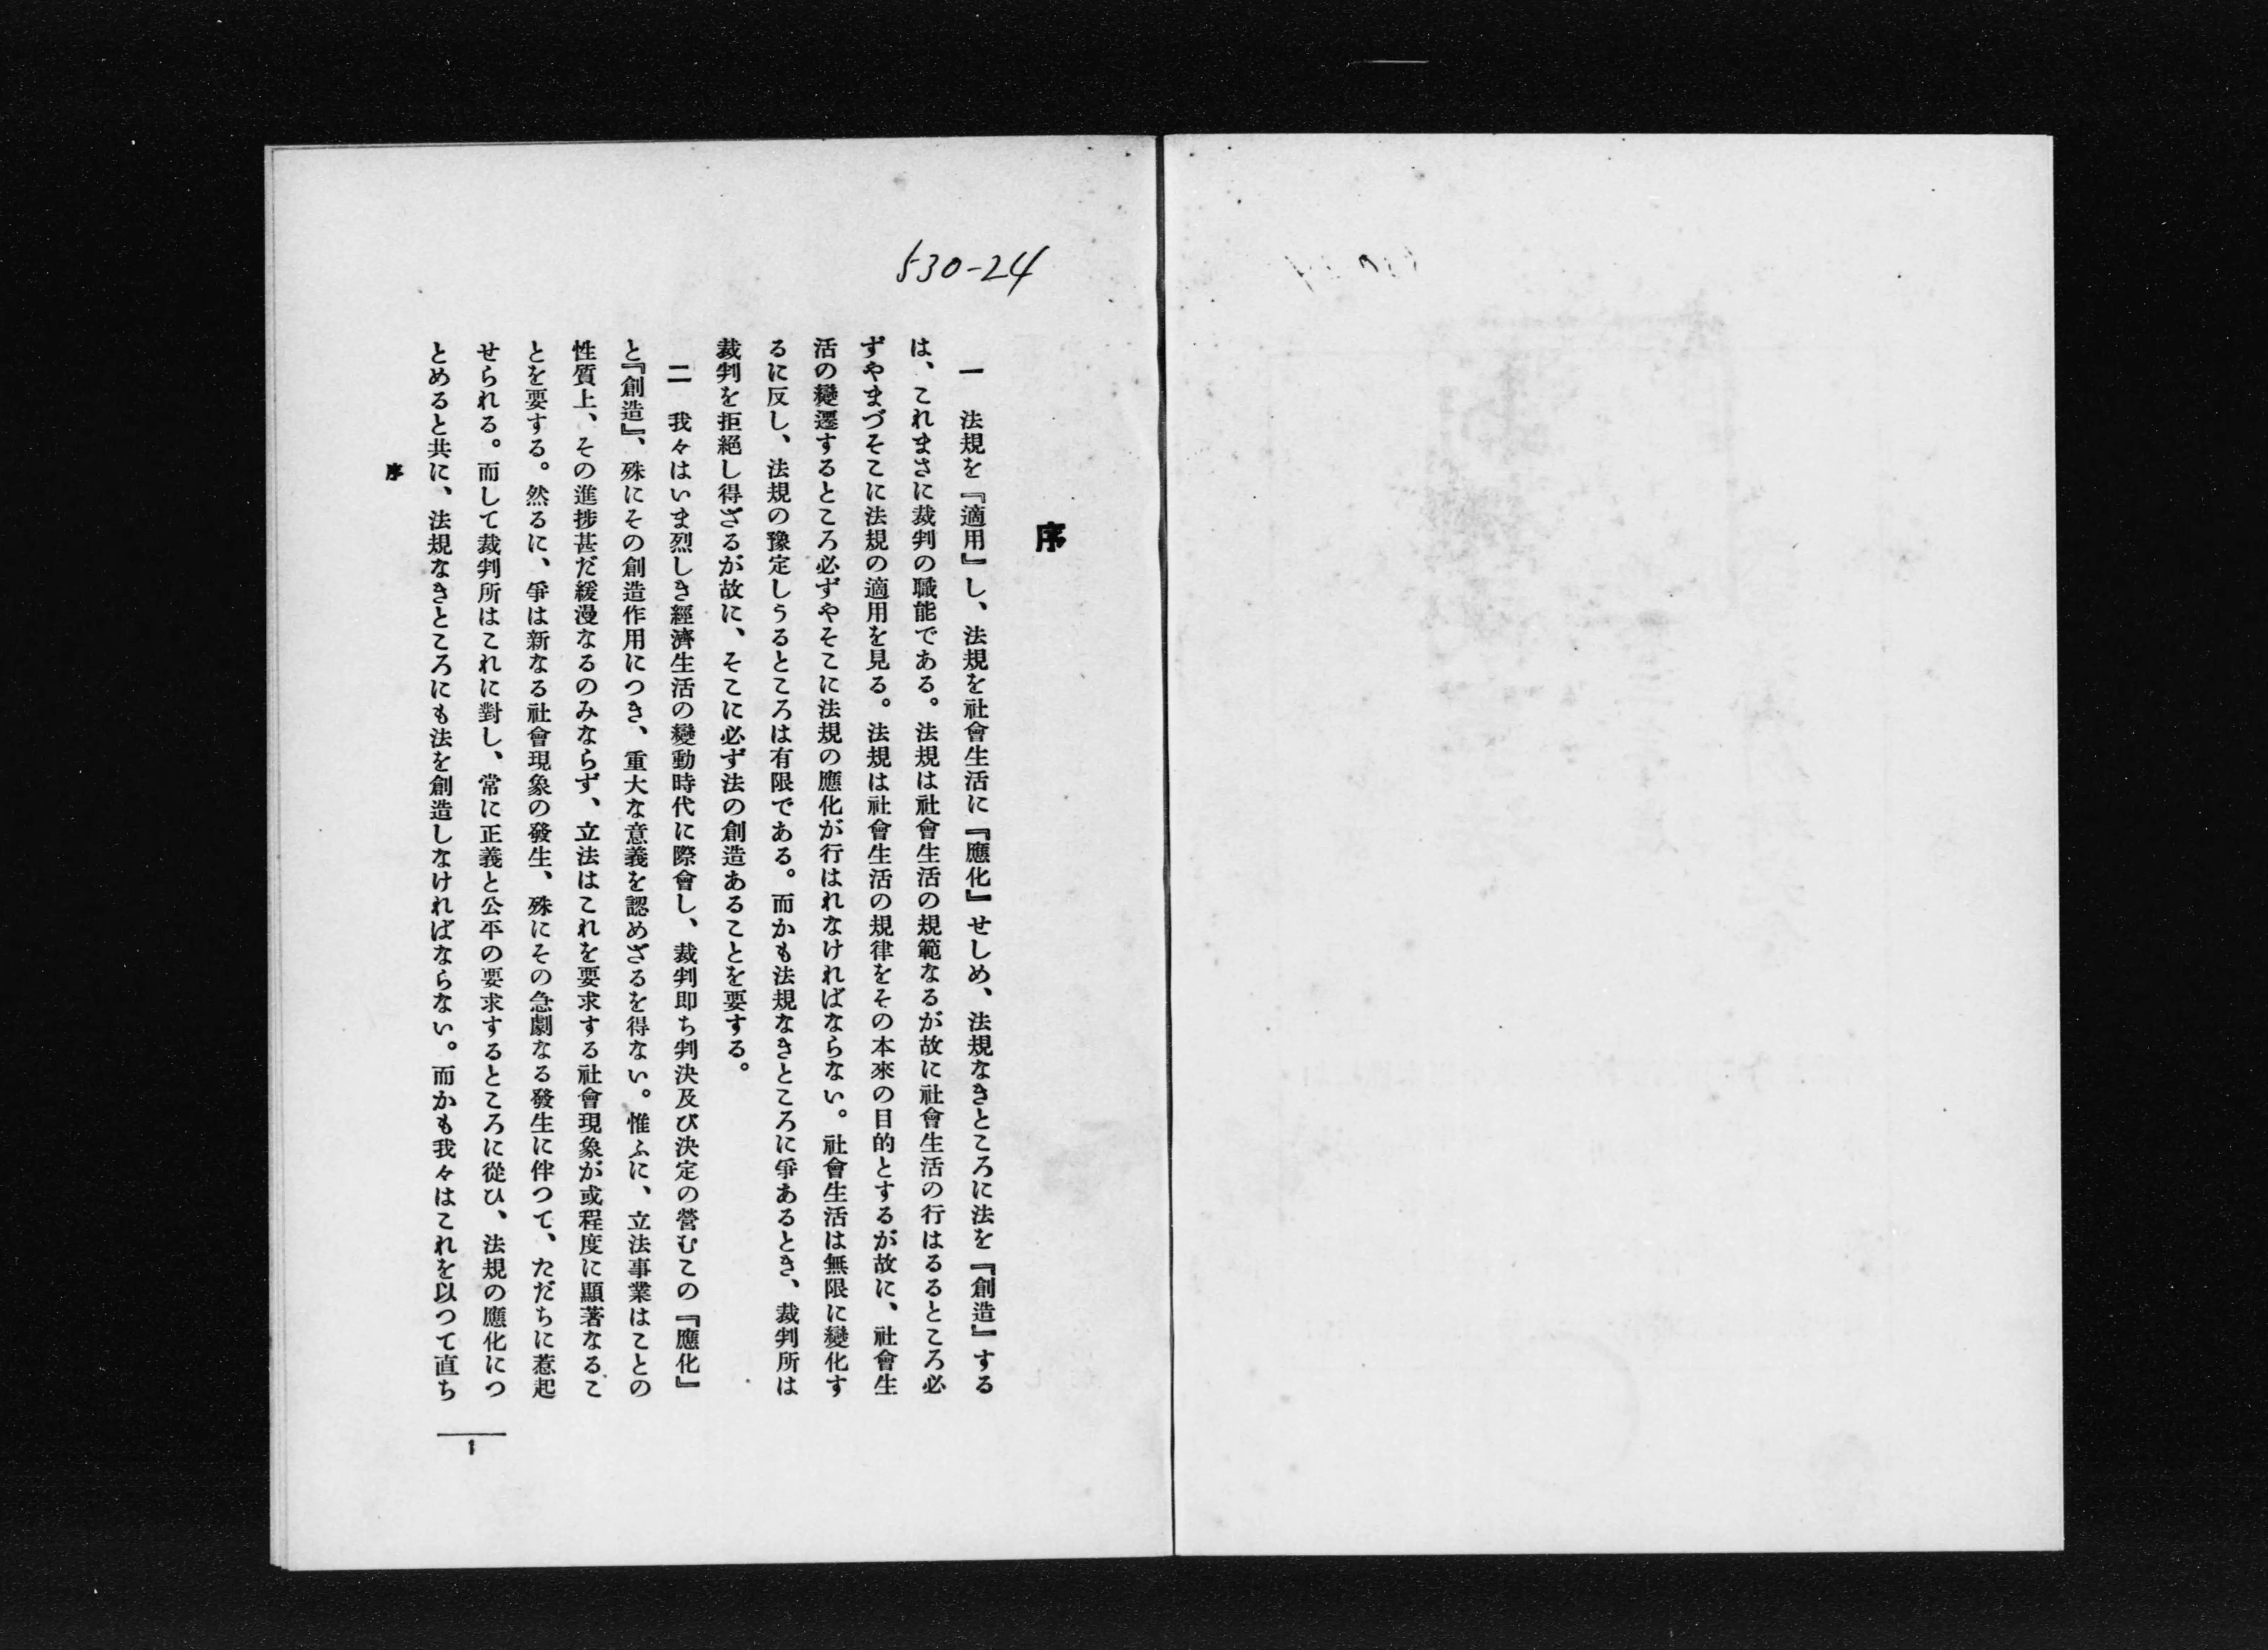 530-24
序
一　法規を『適用』し、法規を社會生活に『應化』せしめ、法規なきところに法を『創造』する
は、これまさに裁判の職能である。法規は社會生活の規範なるが故に社會生活の行はるるところ必
ずやまづそこに法規の適用を見る。法規は社會生活の規律をその本來の目的とするが故に、社會生
活の變遷するところ必ずやそこに法規の應化が行はれなければならない。社會生活は無限に變化す
るに反し、法規の豫定しうるところは有限である。而かも法規なきところに爭あるとき、裁判所は
裁判を拒絕し得ざるが故に、そこに必ず法の創造あることを要する。
二　我々はいま烈しき經濟生活の變動時代に際會し、裁判即ち判決及び決定の營むこの『應化』
と『創造』、殊にその創造作用につき、重大な意義を認めざるを得ない。惟ふに、立法事業はことの
性質上、その進捗甚だ緩漫なるのみならず、立法はこれを要求する社會現象が或程度に顯著なるこ
とを要する。然るに、爭は新なる社會現象の發生、殊にその急劇なる發生に伴つて、ただちに惹起
せられる。而して裁判所はこれに對し、常に正義と公平の要求するところに從ひ、法規の應化につ
とめると共に、法規なきところにも法を創造しなければならない。而かも我々はこれを以つて直ち
序
1